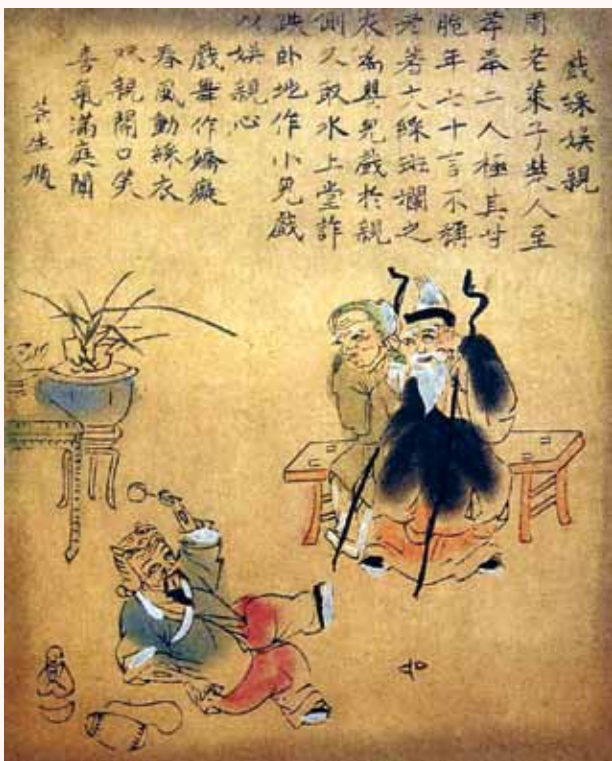 戲綵娛親
周老萊子楚人至
孝奉二人極其甘
脆年十言不稱
老著綵斑斕之
衣為嬰兒戲於親
側又取水上堂詐
跌卧地作小兒戲
以娛親心
戲舞作嬌癡
春風動綵衣
双親開口笑
喜氣滿庭闈